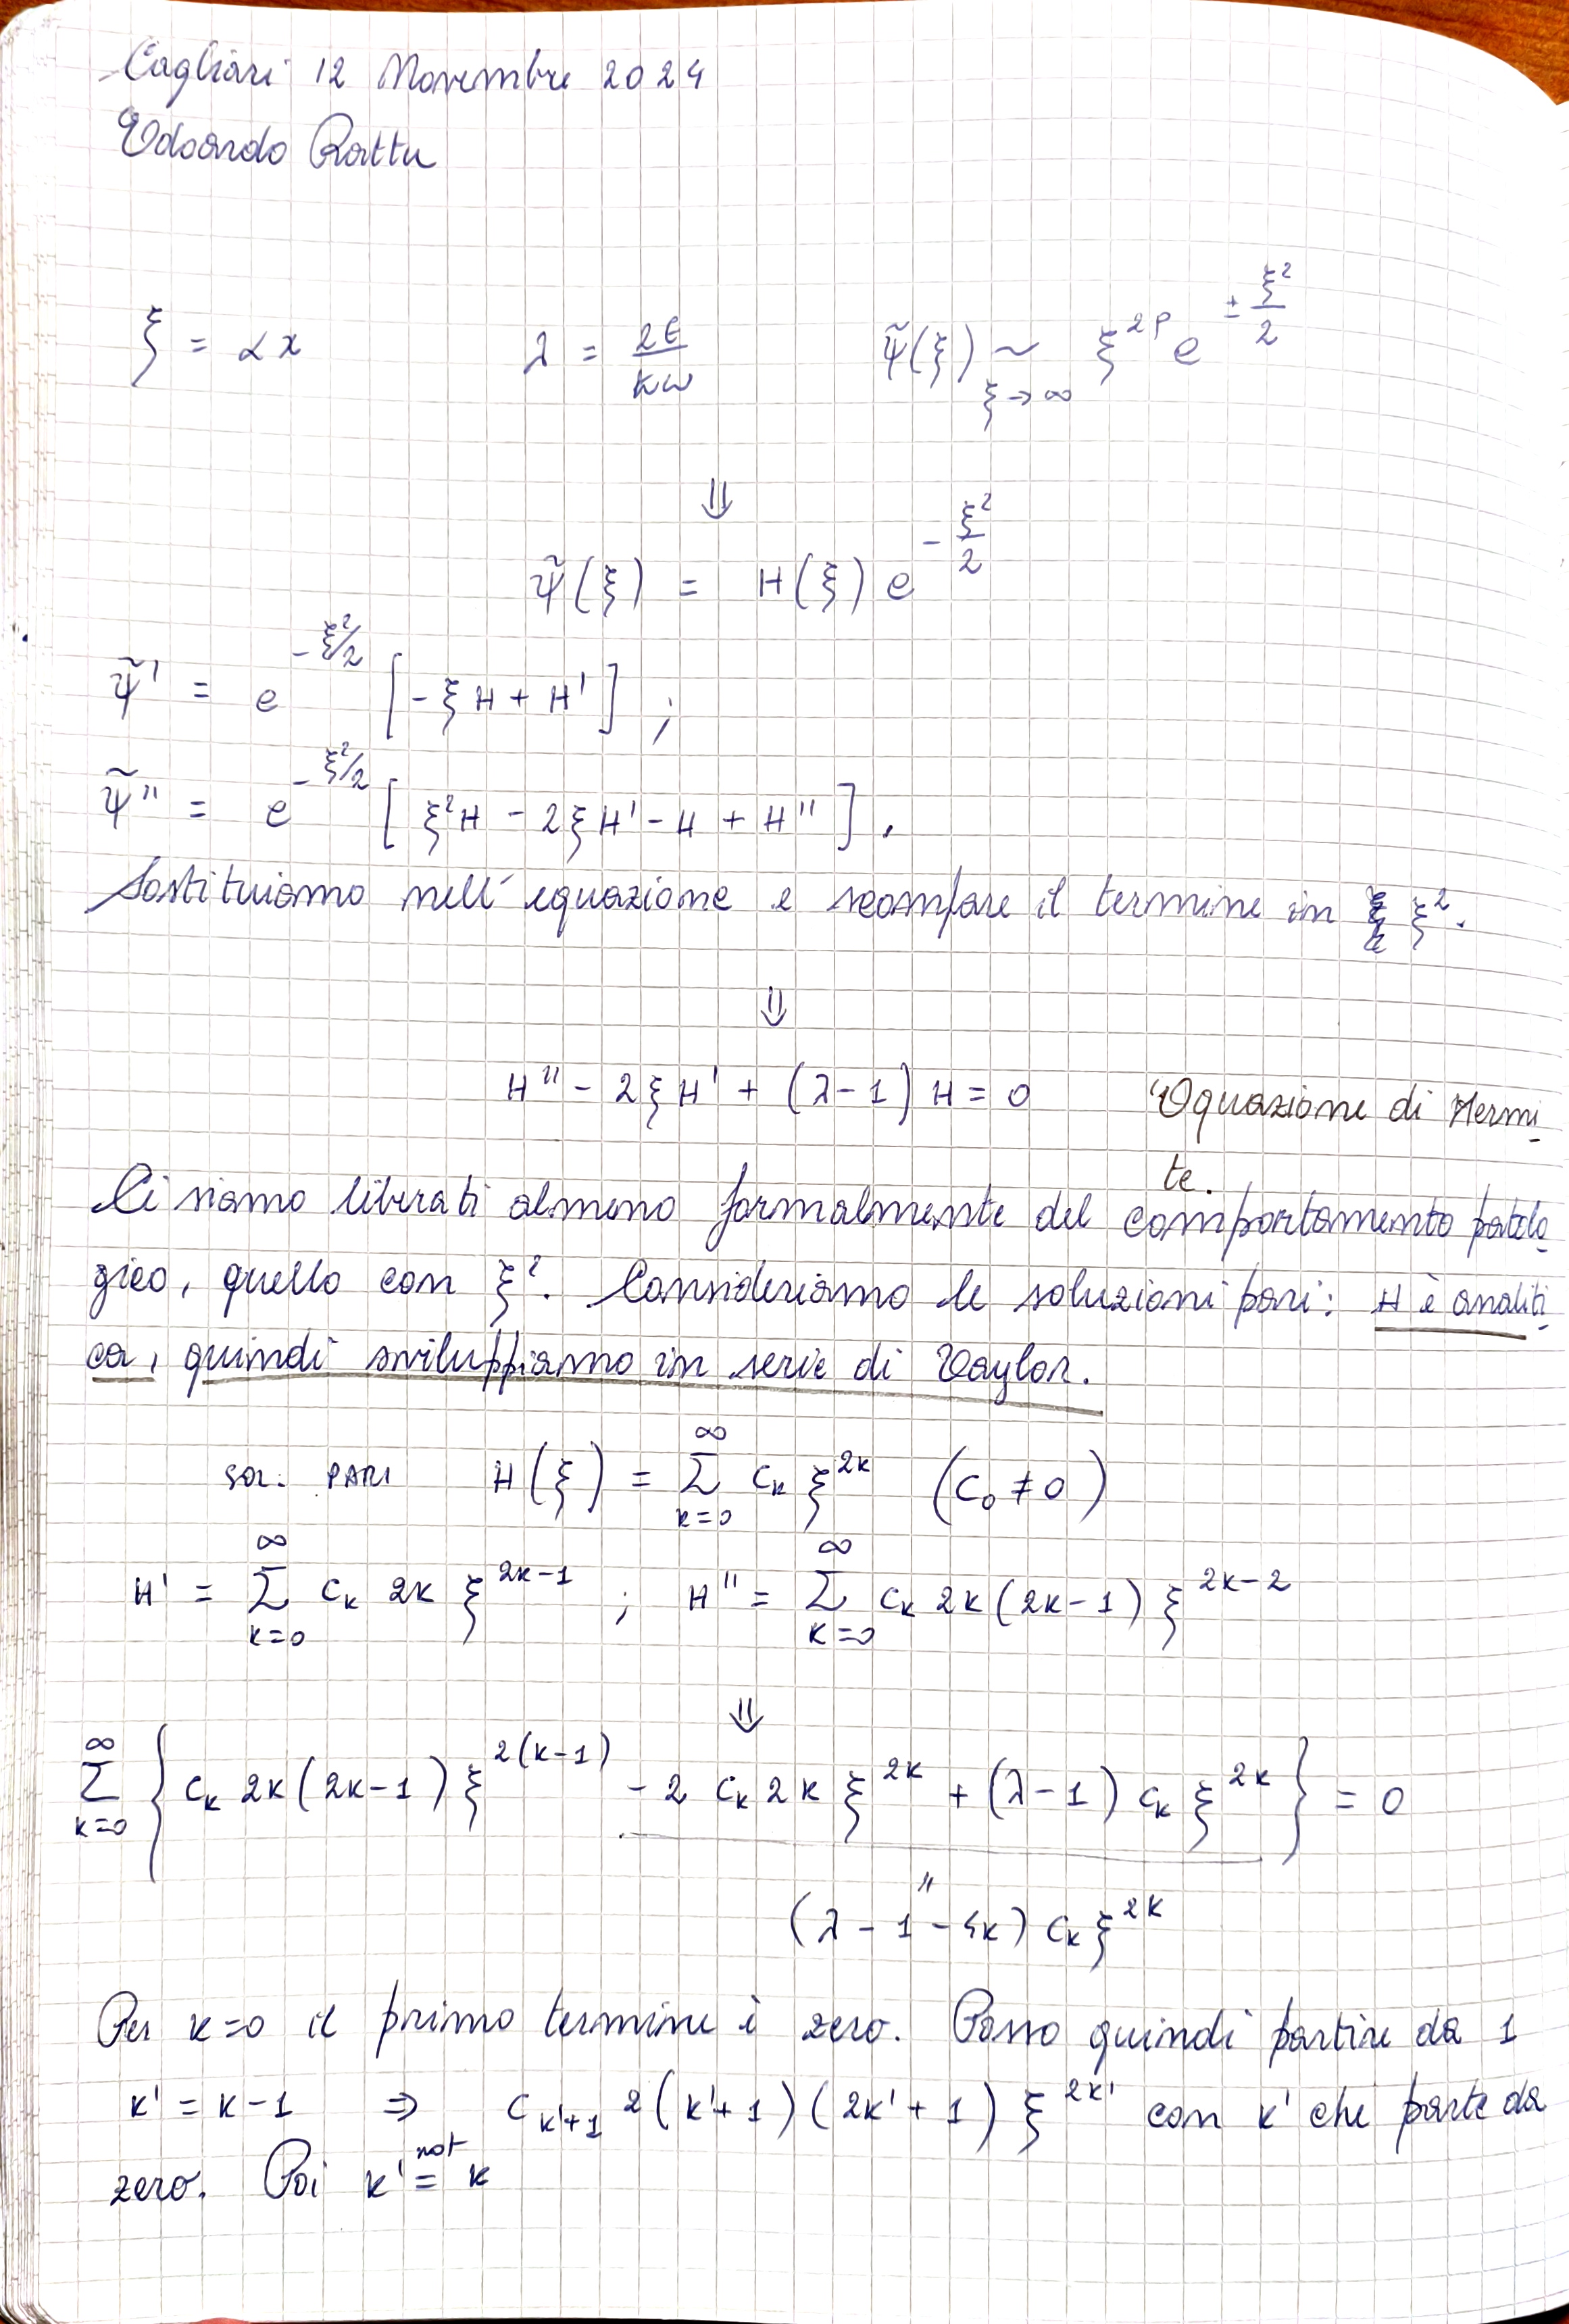 Cagliari 12 Novembre 2024
Edoardo Rattu
ξ = αx    λ = 2E/ħω    ψ̃(ξ) ~_{ξ→∞} ξ^{2p} e^{±ξ²/2}
⇓
ψ̃(ξ) = H(ξ) e^{-ξ²/2}
ψ̃' = e^{-ξ²/2} [-ξH + H'] ;
ψ̃'' = e^{-ξ²/2} [ξ²H - 2ξH' - H + H''] .
Sostituiamo nell'equazione e scompare il termine in ξ².
⇓
H'' - 2ξH' + (λ-1)H = 0    Equazione di Hermi-
te.
Ci siamo liberati almeno formalmente del comportamento patolo-
gico, quello con ξ². Consideriamo le soluzioni pari: H è analiti-
ca, quindi sviluppiamo in serie di Taylor.
SOL. PARI    H(ξ) = Σ_{k=0}^{∞} c_k ξ^{2k}    (c_0 ≠ 0)
H' = Σ_{k=0}^{∞} c_k 2k ξ^{2k-1} ; H'' = Σ_{k=0}^{∞} c_k 2k(2k-1) ξ^{2k-2}
⇓
Σ_{k=0}^{∞} { c_k 2k(2k-1) ξ^{2(k-1)} - 2 c_k 2k ξ^{2k} + (λ-1) c_k ξ^{2k} } = 0
"
(λ - 1 - 4k) c_k ξ^{2k}
Per k=0 il primo termine è zero. Posso quindi partire da 1
k' = k-1 ⇒ c_{k'+1} 2(k'+1)(2k'+1) ξ^{2k'} con k' che parte da
zero. Poi k' \overset{not}{=} k